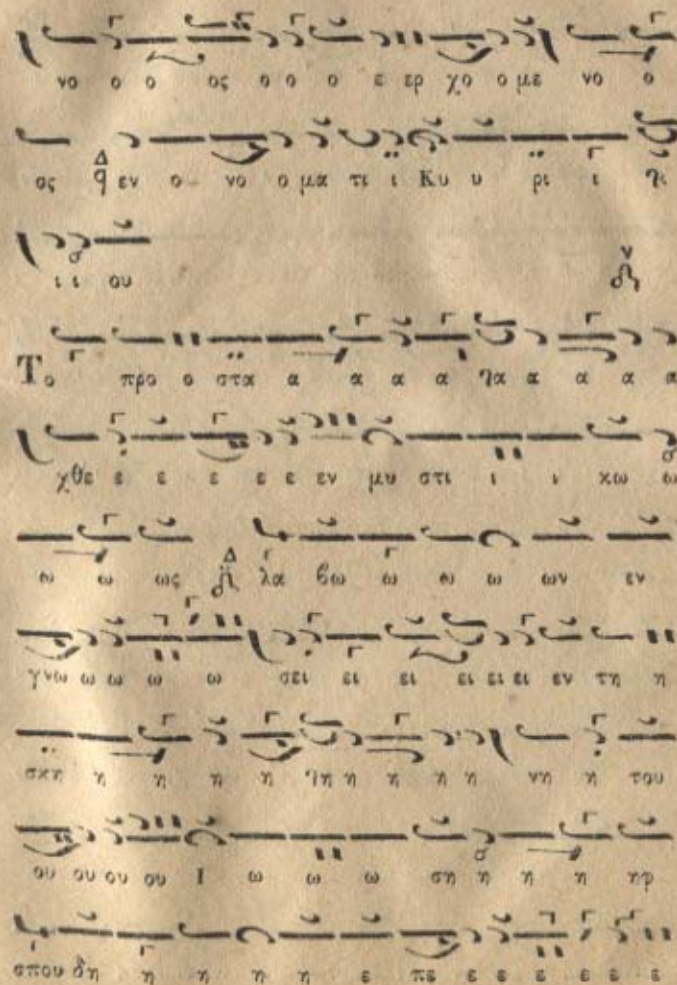 νο ο ο ος ο ο ο ε ερ χο ο με νο ο
ος Δ εν ο νο ο μα τι ι Κυ υ ρι ι
ι ι ου
Το προ ο στα α α α α α α α α
χθε ε ε ε ε ε εν μυ στι ι ι κω ω
ω ω ως Δ λα βω ω ω ω ων εν
γνω ω ω ω ω σει ει ει ει ει ει εν τη η
σκη η η η η η η η η νη η του
ου ου ου ου Ι ω ω ω ση η η η ηρ
σπου δη η η η η ε πε ε ε ε ε ε ε